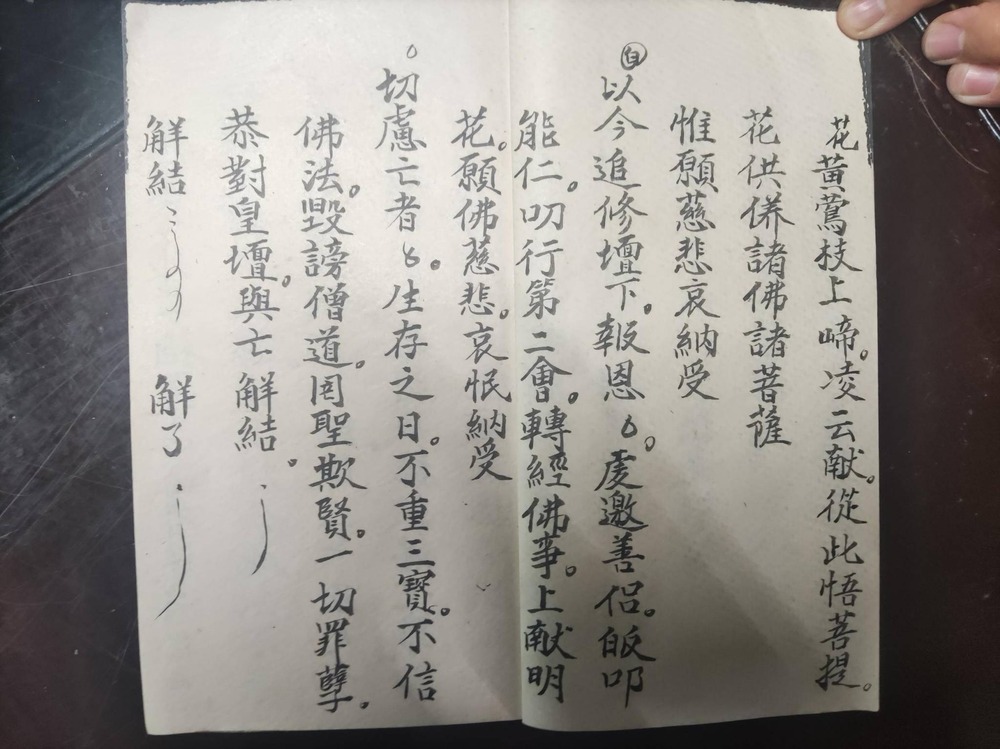 花黃鶯枝上啼。凌云献。從此悟菩提。
花供侎諸佛諸菩薩
惟願慈悲哀納受
自
以今追修壇下。報恩。虔邀善侶。皈叩
能仁。叨行第二會。轉經佛事。上献明
花。願佛慈悲。哀愍納受
切慮亡者。生存之日。不重三寶。不信
佛法。毀謗僧道。罔聖欺賢。一切罪孽。
恭對皇壇。與亡解結。
解結 解了